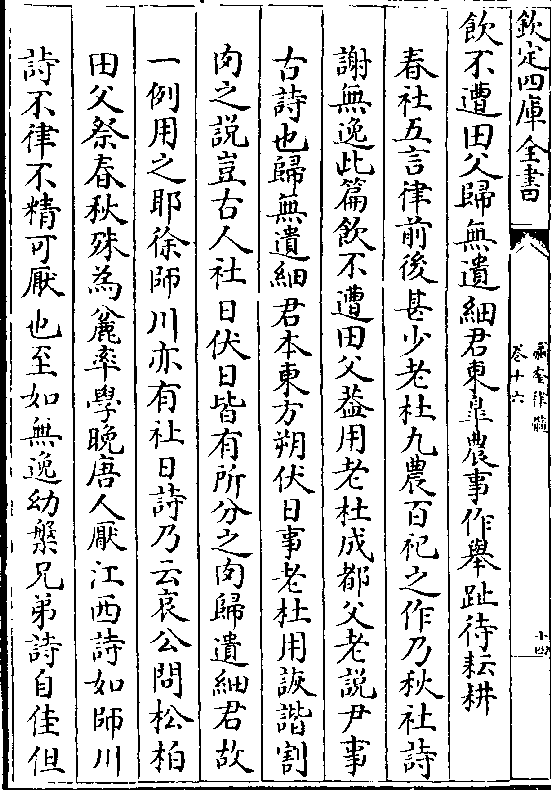 欽定四庫全書
瀛奎律髓
卷十六
十四
飲不遭田父歸無遺細君東臯農事作舉趾待耘耕
春社五言律前後甚少老杜九農百祀之作乃秋社詩
謝無逸此篇飲不遭田父葢用老杜成都父老説尹事
古詩也歸無遺細君本東方朔伏日事老杜用詼諧割
肉之説豈古人社日伏日皆有所分之肉歸遺細君故
一例用之耶徐師川亦有社日詩乃云哀公問松柏
田父祭春秋殊為麄率學晚唐人厭江西詩如師川
詩不律不精可厭也至如無逸幼槃兄弟詩自佳但